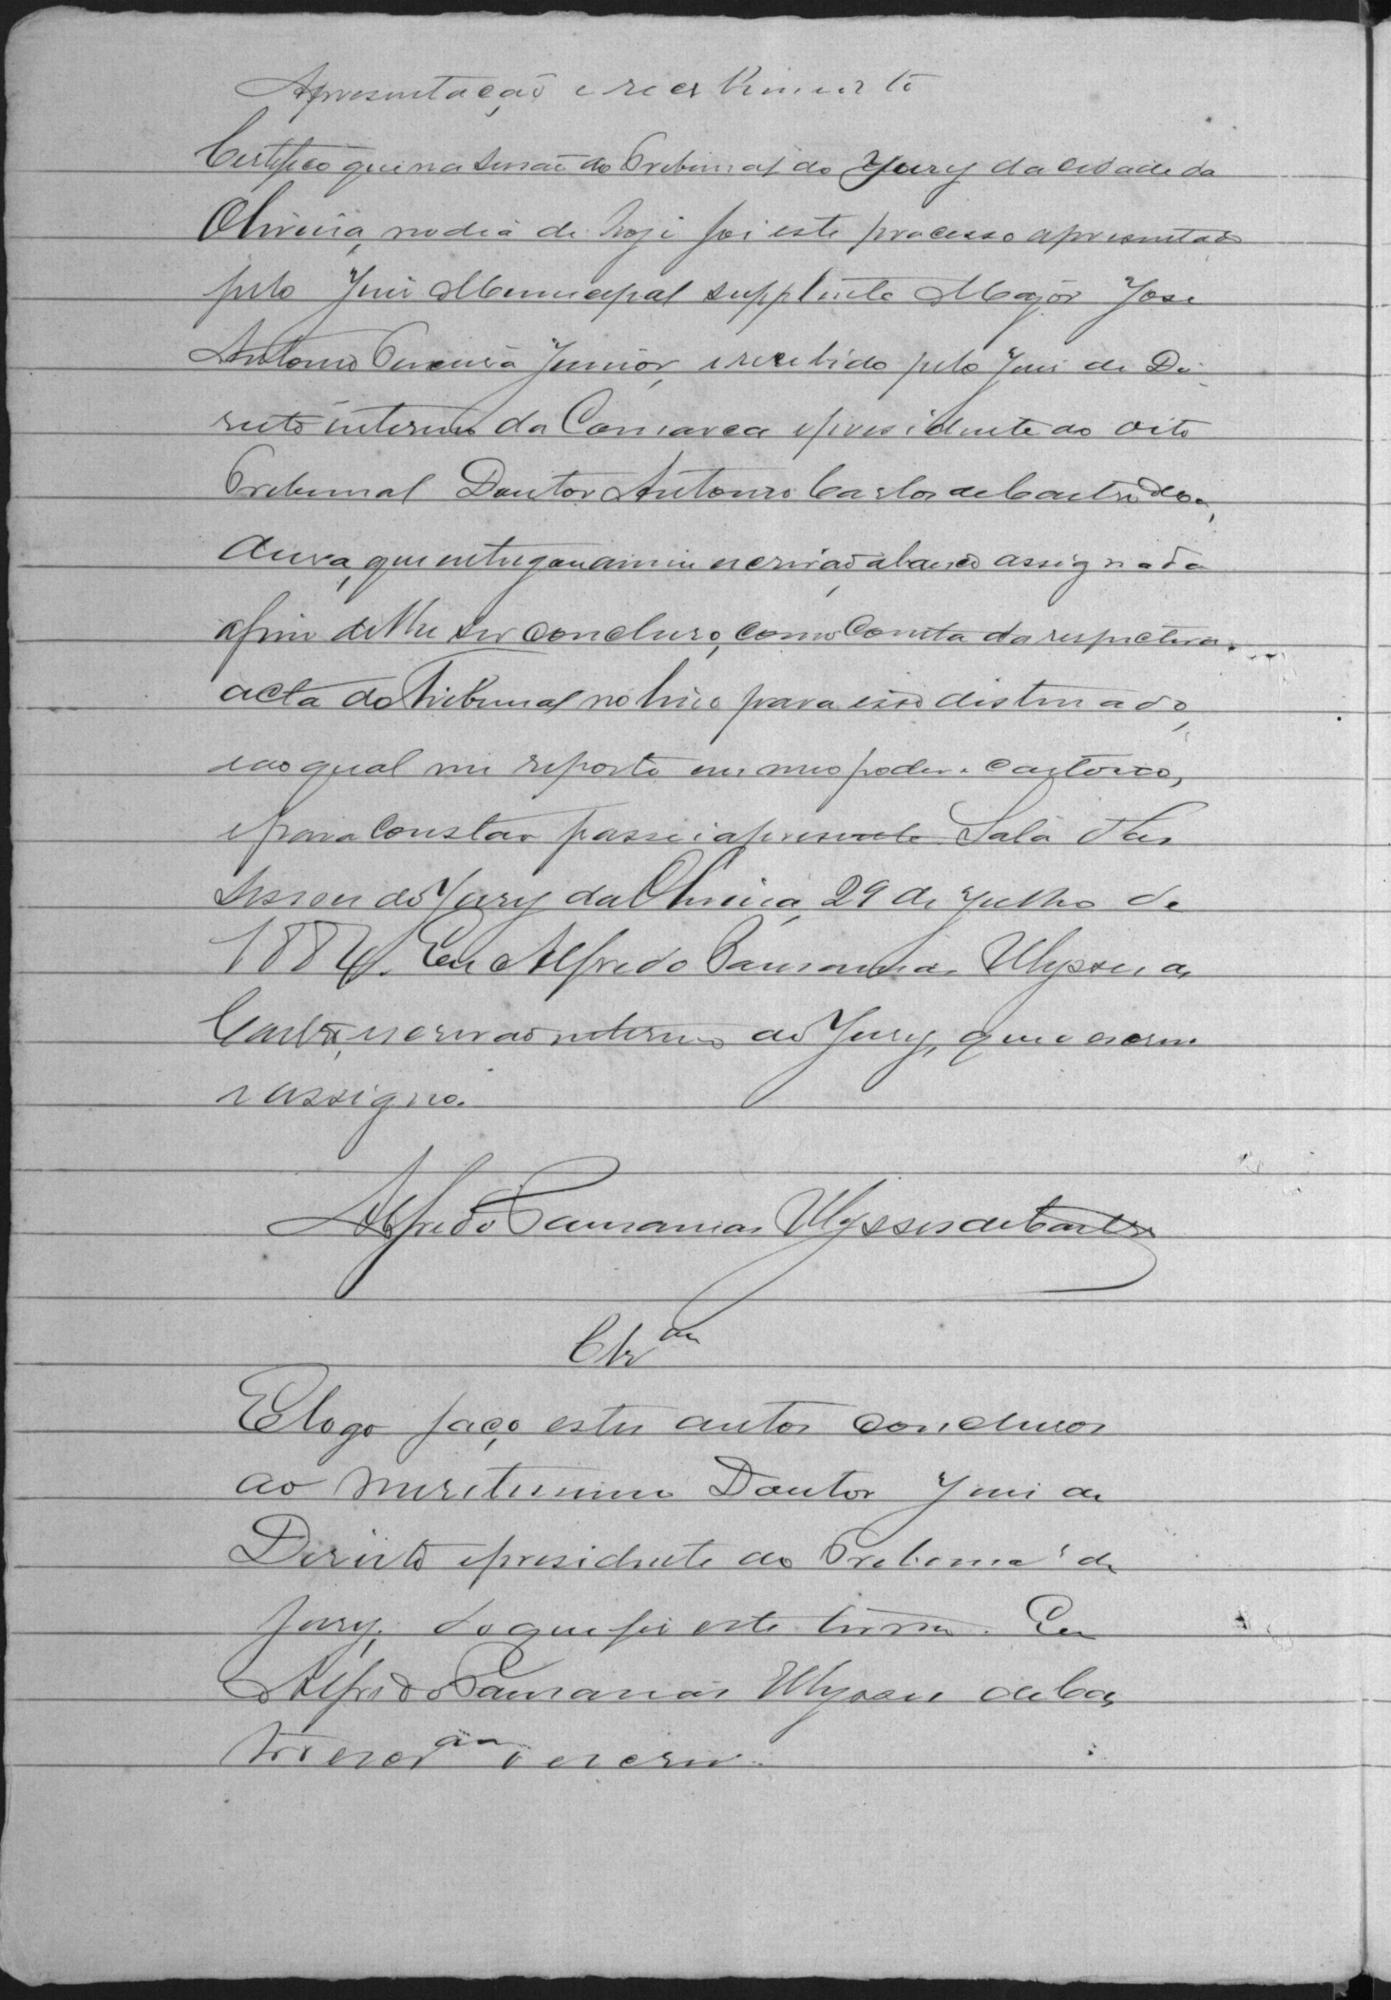 Apresentação e recebimento
Certifico que na sessão do Tribunal do Jury da cidade da
Oliveira, no dia de hoje foi este processo apresentado
pelo Juiz Municipal supplente Major Jose
Antonio Junior, e recebido pelo Juiz de Di-
reito interino da Comarca e presidente do dito
Tribunal Doutor Antonio Carlos de Castro
que entregou a mim escrivão abaixo assignado
afim de lhe ser concluso, como Consta da respectiva
acta do Tribunal no livro para isso distinado,
e ao qual me reporto em meo poder e cartorio,
e para Constar passei a presente. Sala das
sessoes do Jury da Oliveira, 29 de Julho de
1884. Eu Alfredo Pausanias Ulysses de
Castro, escrivão interino do Jury, que o escrevi
e assigno.
Alfredo Pausanias Ulysses de Castro
Clz.am
E logo faço estes autos conclusos
ao meretissimo Doutor Juiz de
Direito e presidente do Tribunal do
Jury, do que fis este termo. Eu
Alfredo Pausanias Ulysses de Cas
tro escr.am o escrevi.